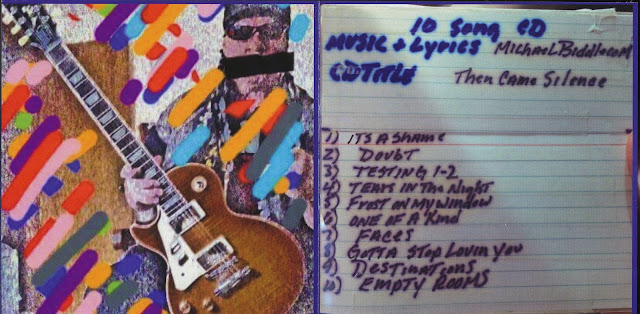 10 Song CD
MUSIC + Lyrics MichaeL Biddlecom
CD TITLE Then Came Silence
1) ITS A Shame
2) Doubt
3) TESTING 1-2
4) TEARS IN The Night
5) Frost on My Window
6) ONE OF A Kind
7) FACES
8) GOTTA STOP LOVIN YOU
9) DESTINATIONS
10) EMPTY ROOMS